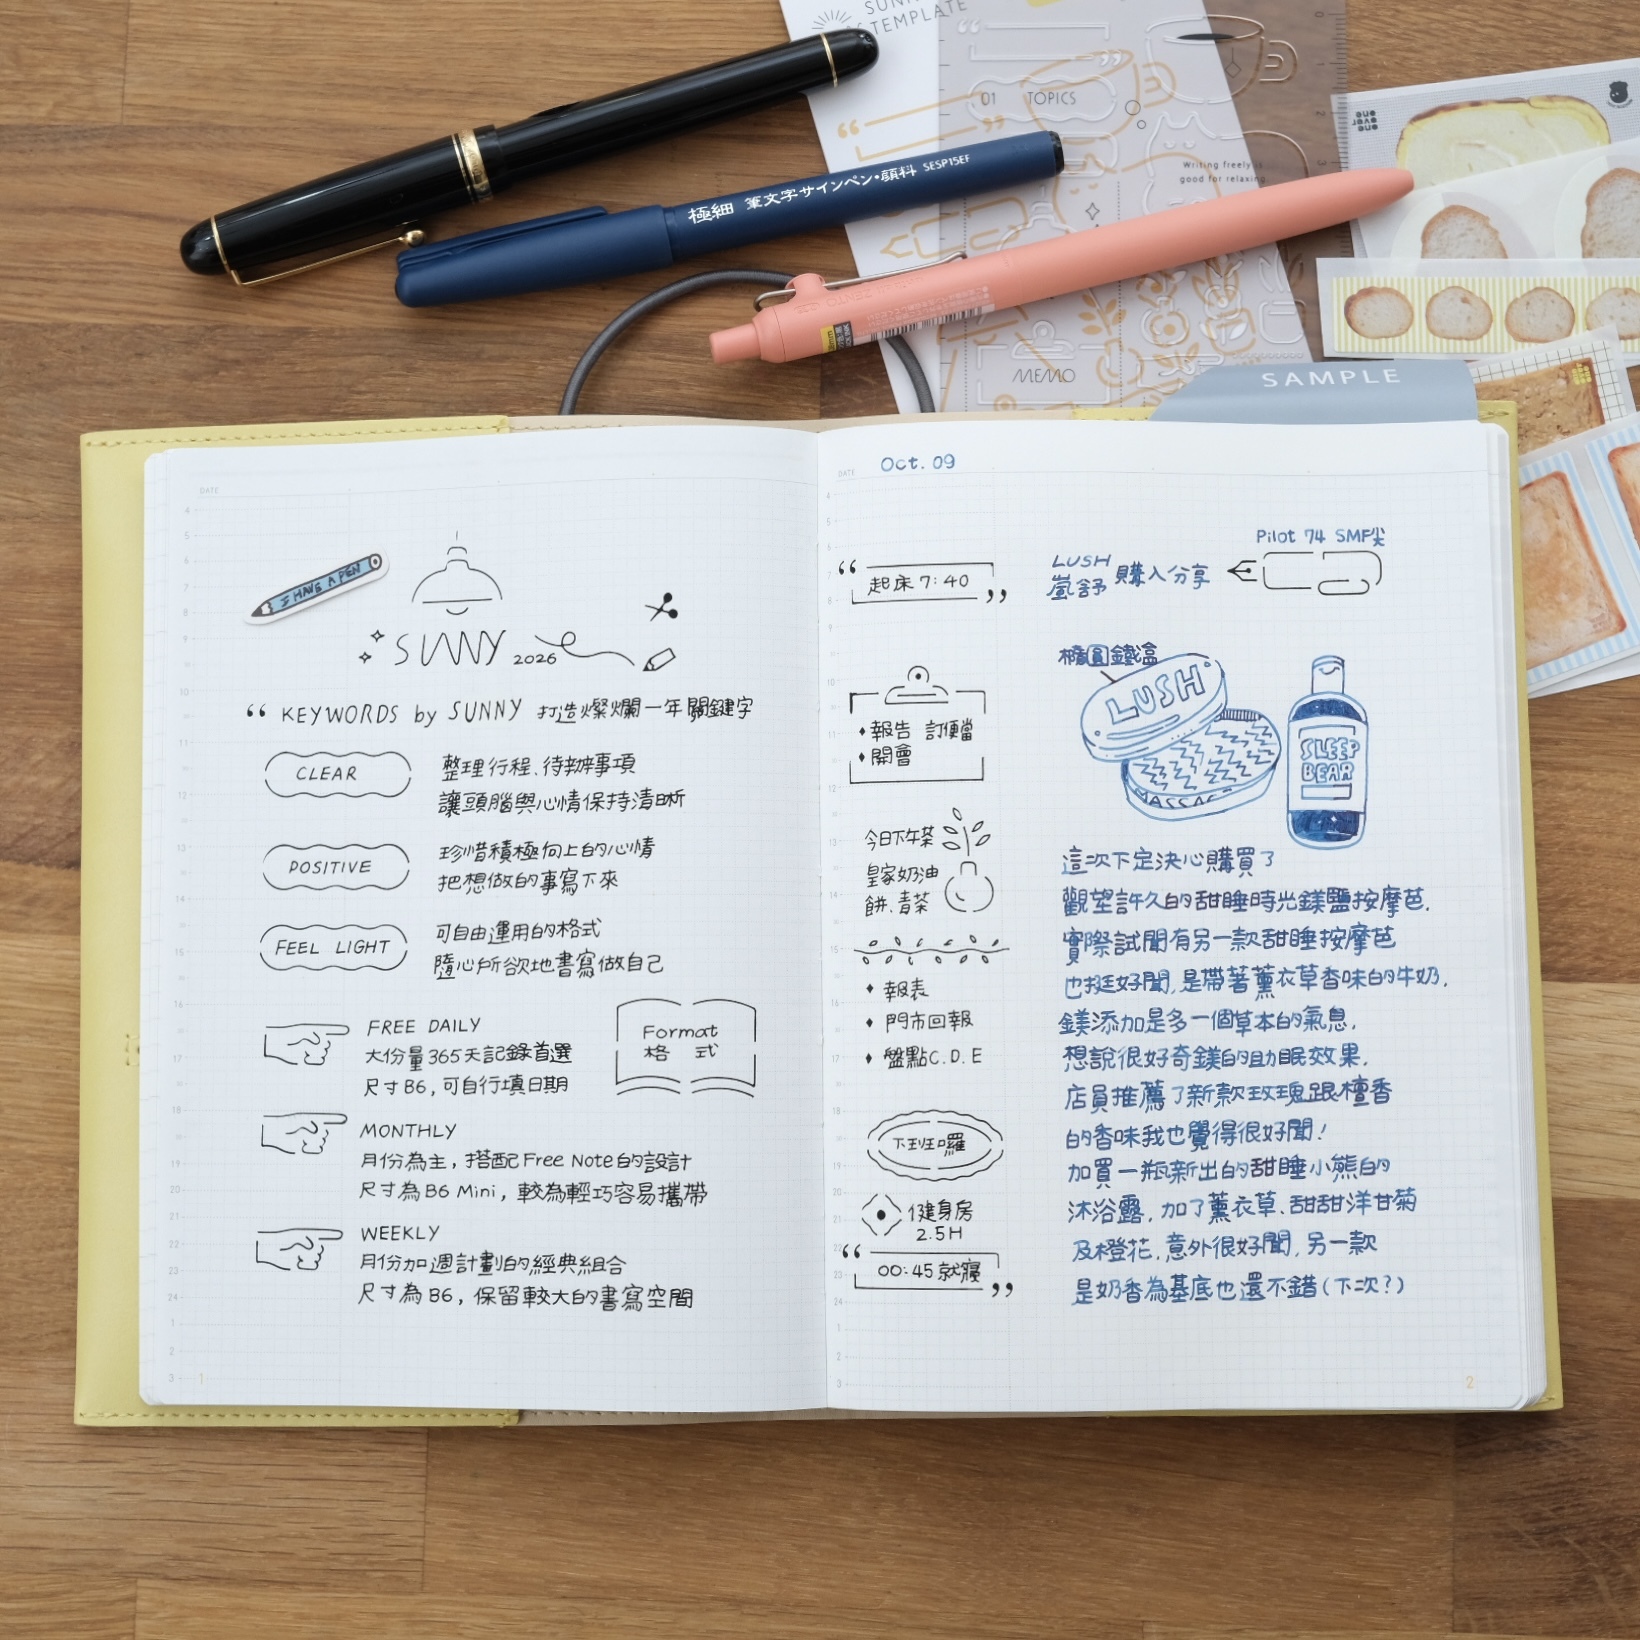 SUNN
TEMPLATE
01 TOPICS
Writing freely is
good for relaxing.
MEMO
極細 筆文字サインペン・顔料 SESP15EF
one
ever
one
SAMPLE
DATE
I HAVE A PEN
SUNNY 2026
“ KEYWORDS by SUNNY 打造燦爛一年關鍵字
CLEAR
整理行程、待辦事項
讓頭腦與心情保持清晰
POSITIVE
珍惜積極向上的心情
把想做的事寫下來
FEEL LIGHT
可自由運用的格式
隨心所欲地書寫做自己
FREE DAILY
大份量365天記錄首選
尺寸B6,可自行填日期
Format
格 式
MONTHLY
月份為主,搭配Free Note的設計
尺寸為B6 Mini,較為輕巧容易攜帶
WEEKLY
月份加週計劃的經典組合
尺寸為B6,保留較大的書寫空間
4
5
6
7
8
9
10
11
12
13
14
15
16
17
18
19
20
21
22
23
24
1
2
3
1
DATE
Oct. 09
“ 起床 7:40 ”
• 報告 訂便當
• 開會
今日下午茶
皇家奶油
餅、青茶
• 報表
• 門市回報
• 盤點C.D.E
下班囉
健身房
2.5H
“ 00:45就寢 ”
LUSH
嵐舒 購入分享
Pilot 74 SMF尖
橢圓鐵盒
LUSH
MASSAG
SLEEP
BEAR
這次下定決心購買了
觀望許久的甜睡時光鎂鹽按摩芭.
實際試聞有另一款甜睡按摩芭
也挺好聞,是帶著薰衣草香味的牛奶.
鎂添加是多一個草本的氣息.
想說很好奇鎂的助眠效果.
店員推薦了新款玫瑰跟檀香
的香味我也覺得很好聞!
加買一瓶新出的甜睡小熊的
沐浴露,加了薰衣草、甜甜洋甘菊
及橙花,意外很好聞,另一款
是奶香為基底也還不錯(下次?)
2